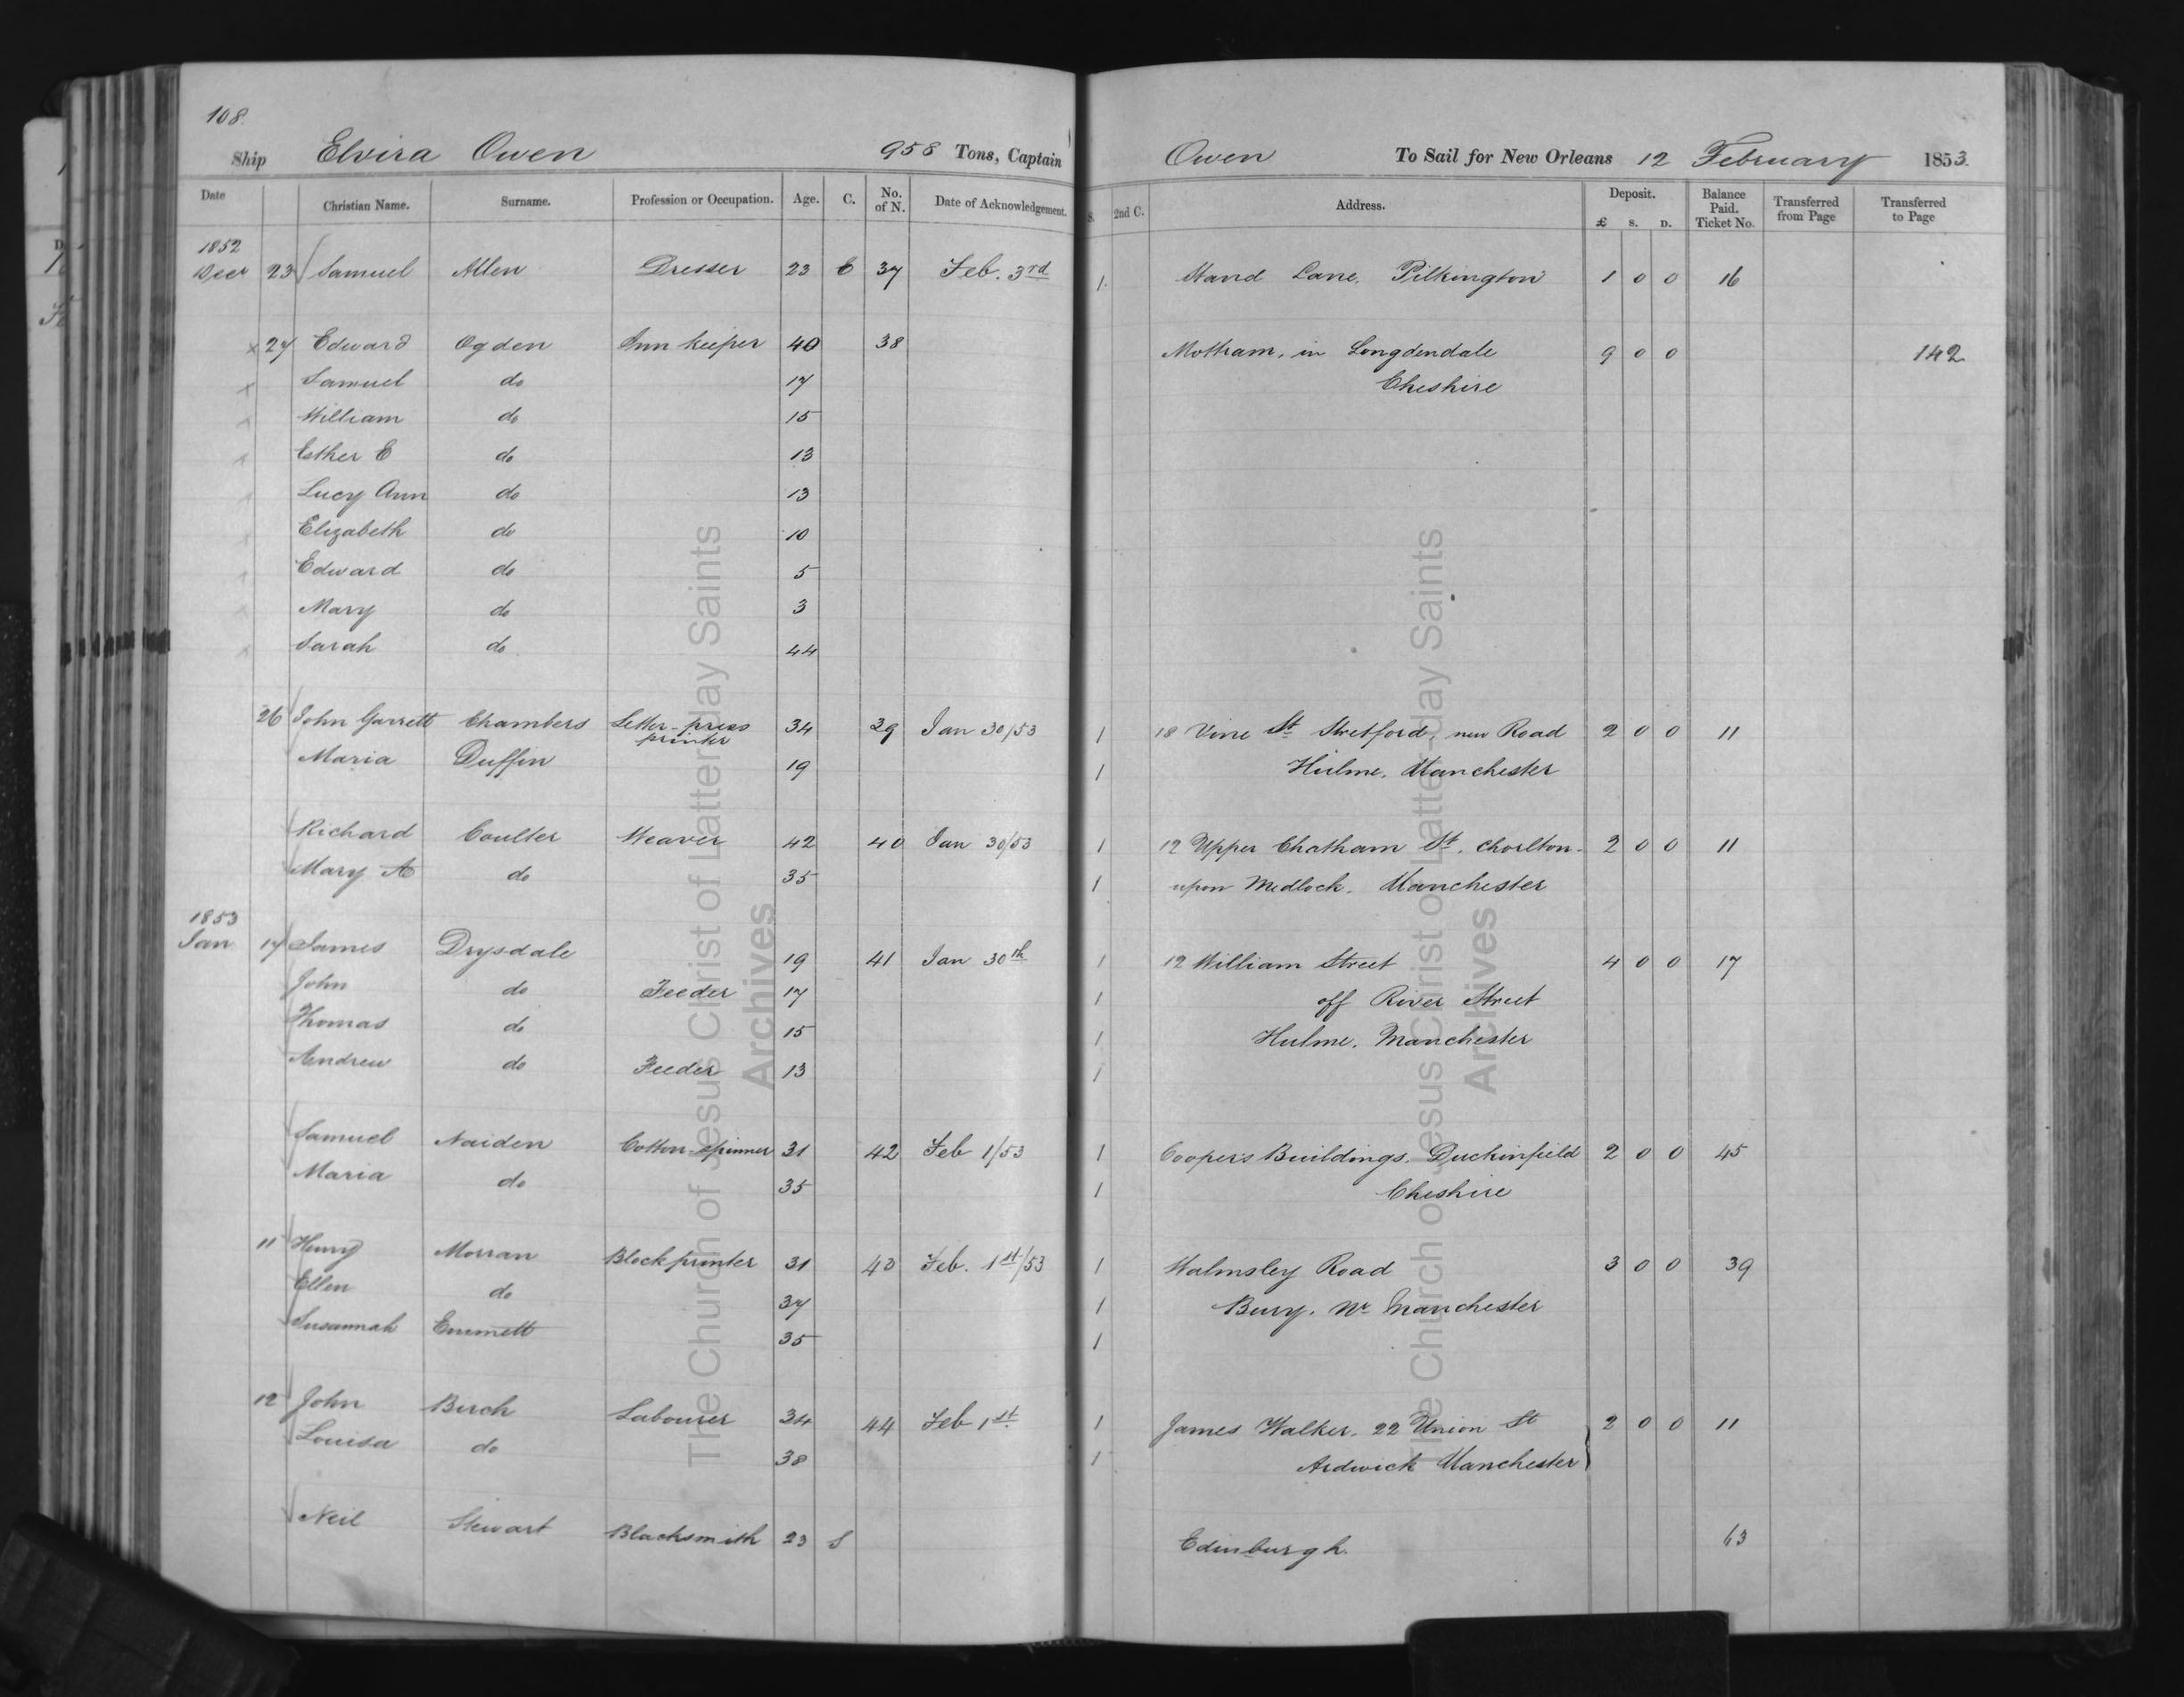 108.
Ship Elvira Owen 958 Tons, Captain Owen To Sail for New Orleans 12 February 1853.
Date Christian Name. Surname. Profession or Occupation. Age. C. No. of N. Date of Acknowledgement. S. 2nd C. Address. Deposit. £ s. D. Balance Paid. Ticket No. Transferred from Page Transferred to Page
1852
Decr 23 Samuel Allen Dresser 23 E 37 Feb. 3rd 1 Stand Lane, Pilkington 1 0 0 16
x 27 Edward Ogden Inn keeper 40 38 Mottram, in Longdendale 9 0 0 142
x Samuel do 17 Cheshire
x William do 15
x Esther E do 13
x Lucy Ann do 13
x Elizabeth do 10
x Edward do 5
x Mary do 3
x Sarah do 44
26 John Garrett Chambers Letter-press 34 39 Jan 30/53 1 18 Vine St Stretford, new Road 2 0 0 11
printer
Maria Duffin 19 1 Hulme, Manchester
Richard Coulter Weaver 42 40 Jan 30/53 1 12 Upper Chatham St. Chorlton- 2 0 0 11
Mary A do 35 1 upon Medlock. Manchester
1853
Jan 17 James Drysdale 19 41 Jan 30th 1 12 William Street 4 0 0 17
John do Feeder 17 1 off River Street
Thomas do 15 1 Hulme. Manchester
Andrew do Feeder 13 1
Samuel Naiden Cotton-spinner 31 42 Feb 1/53 1 Coopers Buildings. Duckinfield 2 0 0 45
Maria do 35 1 Cheshire
11 Henry Morran Block printer 31 43 Feb. 1st/53 1 Walmsley Road 3 0 0 39
Ellen do 37 1 Bury. Nr Manchester
Susannah Emmett 35 1
12 John Birch Labourer 34 44 Feb 1st 1 James Walker. 22 Union St 2 0 0 11
Louisa do 38 1 Ardwick Manchester
Neil Stewart Blacksmith 23 S Edinburgh. 63
The Church of Jesus Christ of Latter-day Saints
Archives
The Church of Jesus Christ of Latter-day Saints
Archives